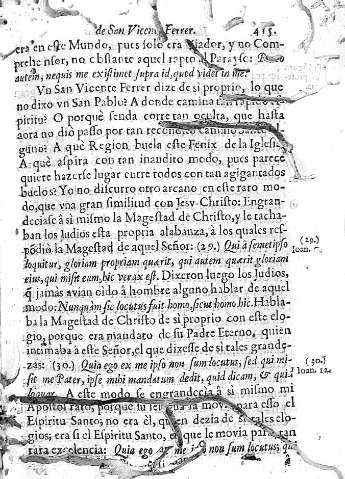 de San Vicente Ferrer. 415.
era en este Mundo, pues solo era Viador, y no Com-
prehensor, no obstante aquel rapto al Parayso:
autem, nequis me existimet supra id, quod videt in me.
Vn San Vicente Ferrer dize de si proprio, lo que
no dixo vn San Pablo? A donde camina tan
piritu? O porquè senda corre tan oculta, que hasta
aora no diò passo por tan camino
guno? A què Region buela este Fenix de la Iglesia
A què aspira con tan inaudito modo, pues parece
quiere hazerse lugar entre todos con tan agigantados
buelos? Yo no discurro otro arcano en este raro mo-
do, que vna gran similitud con Jesv-Christo: Engran-
deciase à si mismo la Magestad de Christo, y le tacha-
ban los Iudios esta propria alabanza, à los quales res-
põdiò la Magestad de aquel Señor: (29.) Qui à semetipso
loquitur, gloriam propriam quærit, qui autem quærit gloriam
eius, qui misit eum, hic verax est. Dixeron luego los Iudios,
q̃ jamàs avian oìdo à hombre alguno hablar de aquel
modo: Nunquàm sic locutus fuit homo, sicut homo hic. Habla-
ba la Magestad de Christo de si proprio con este elo-
gio, porque era mandato de su Padre Eterno, quien
intimaba à este Señor, el que dixesse de si tales grande-
zas: (30.) Quia ego ex me ipso non sum locutus, sed qui mi-
sit me Pater, ipse mihi mandatum dedit, quid dicam, & quid
loquar. A este modo se engrandecia à si mismo mi
Apostol raro, porque su lengua la movia para esso el
Espiritu Santo; no era èl, quien dezia de si tales elo-
gios; era si el Espiritu Santo, el que le movia para tan
rara excelencia: Quia ego ex me ipso non sum locutus; qui
(29.)
Ioan.
(30.)
Ioan. 12.